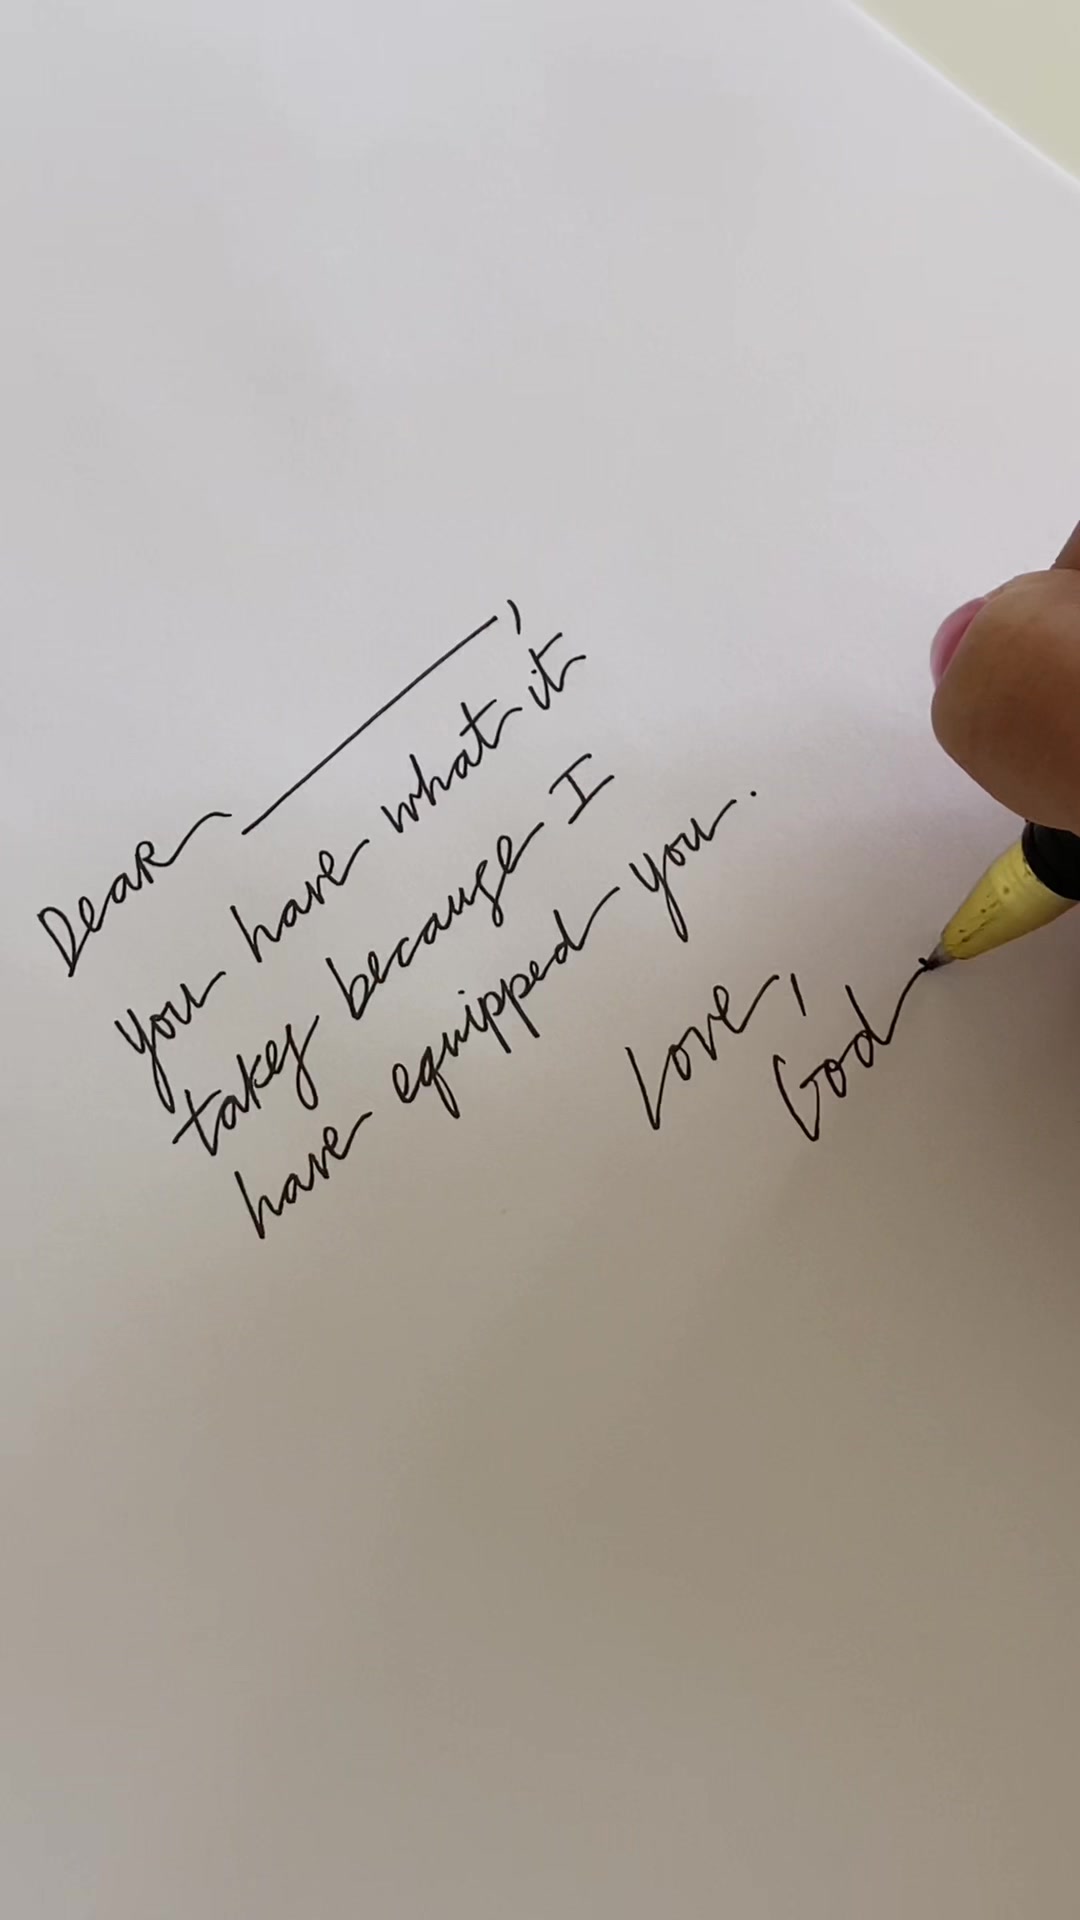 Dear ________,
you have what it
takes because I
have equipped you.
Love,
God